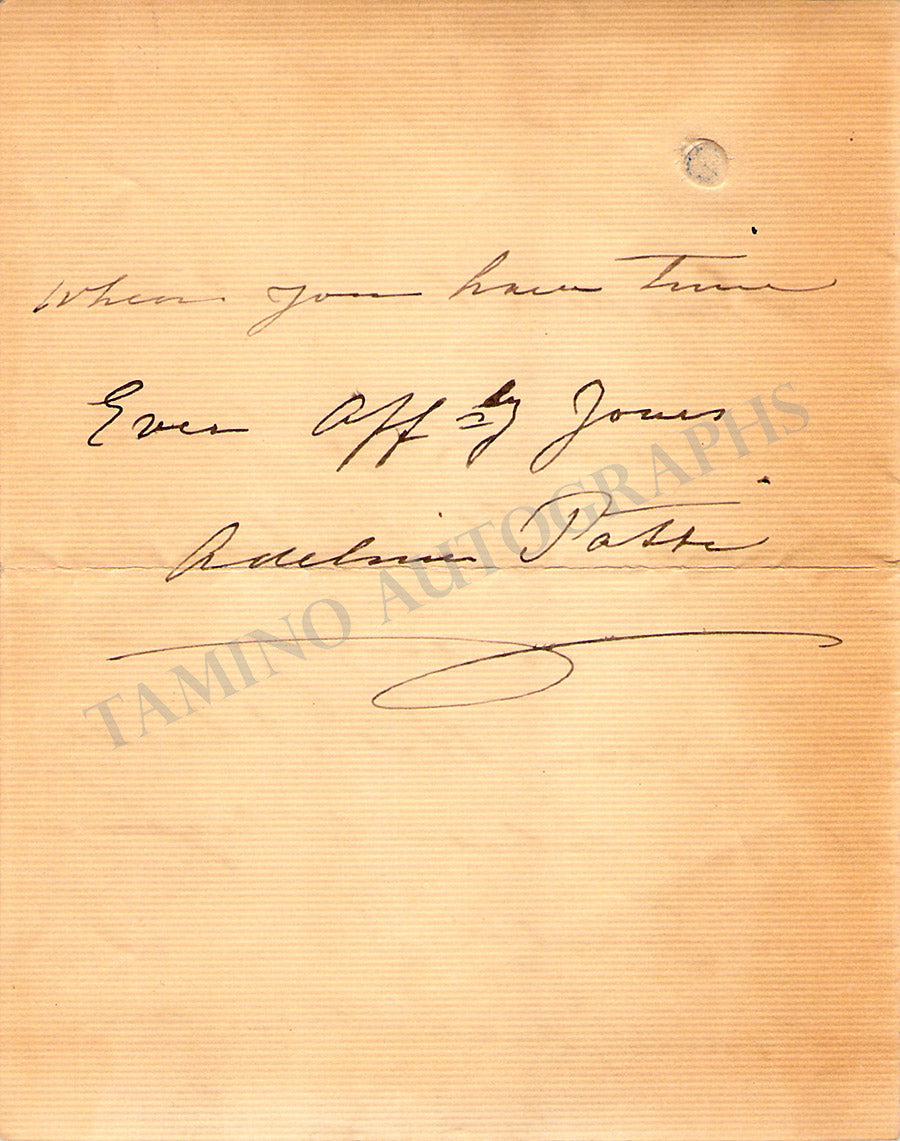 when you have time
Ever Aff ly Yours
Adelina Patti
TAMINO AUTOGRAPHS